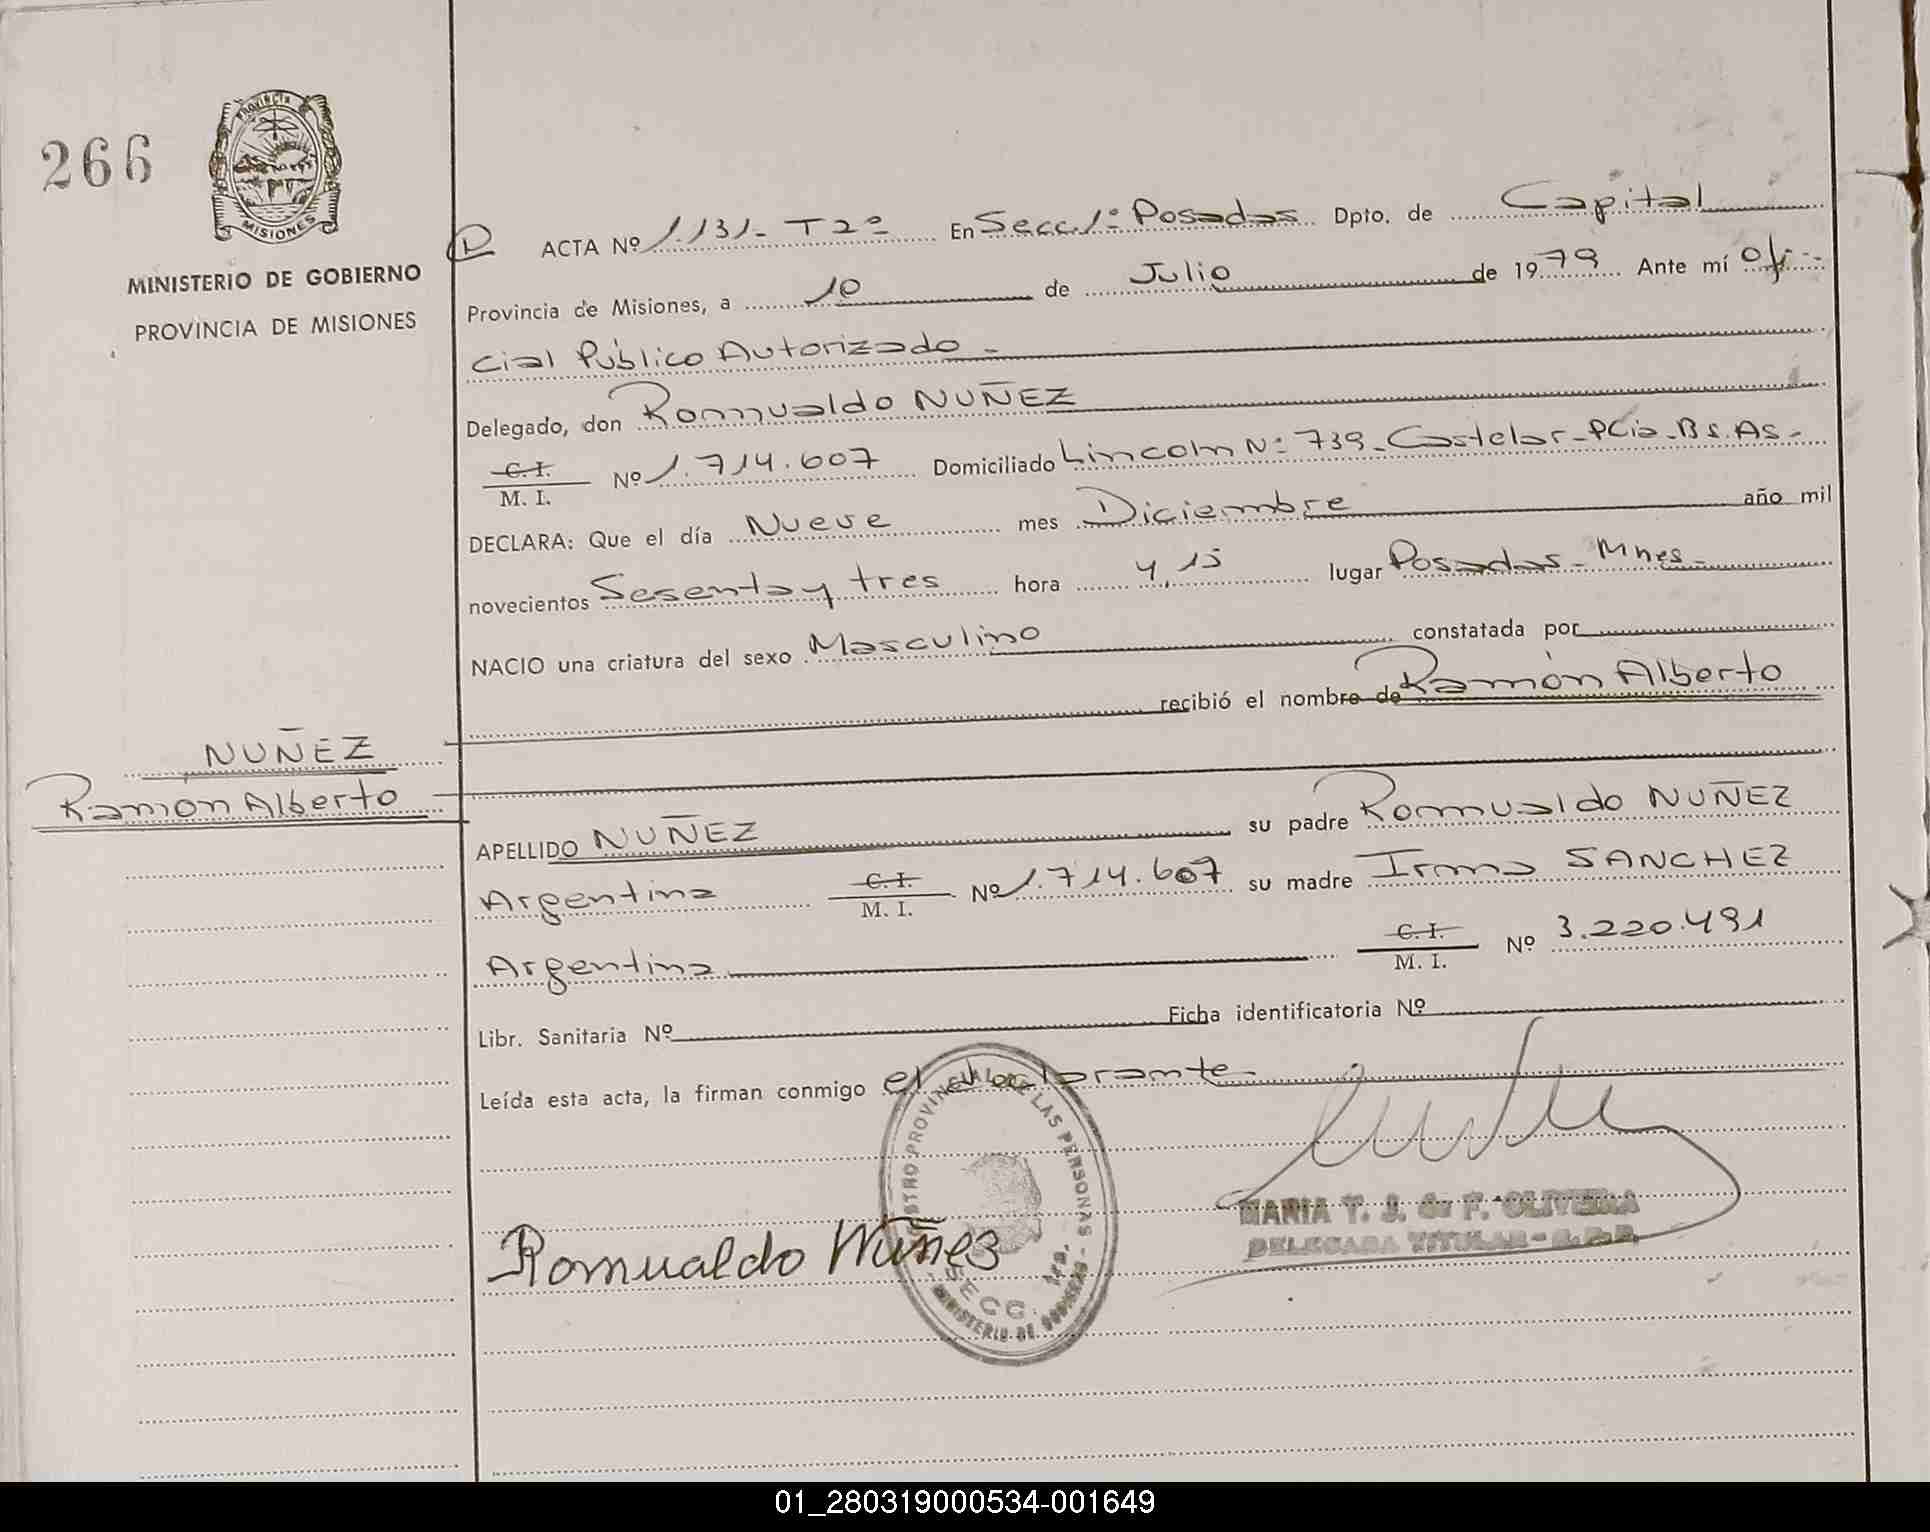 266
PROVINCIA
MISIONES
MINISTERIO DE GOBIERNO
PROVINCIA DE MISIONES
ACTA Nº 1.131- T2º En Secc.1º Posadas Dpto. de Capital
Provincia de Misiones, a 10 de Julio de 1979 Ante mí Ofi-
cial Público Autorizado -
Delegado, don Romualdo NUÑEZ
C. I.
M. I. Nº 1.714.607 Domiciliado Lincoln Nº 739 - Castelar - PCia - Bs. As -
DECLARA: Que el día Nueve mes Diciembre año mil
novecientos Sesenta y tres hora 4,15 lugar Posadas - Mnes -
NACIO una criatura del sexo Masculino constatada por
recibió el nombre de Ramón Alberto
NUÑEZ
Ramón Alberto
APELLIDO NUÑEZ su padre Romualdo NUÑEZ
Argentina C. I.
M. I. Nº 1.714.607 su madre Irma SANCHEZ
Argentina C. I.
M. I. Nº 3.220.491
Libr. Sanitaria Nº Ficha identificatoria Nº
Leída esta acta, la firman conmigo el declarante -
REGISTRO PROVINCIAL DE LAS PERSONAS -
SECC. 1ra.
MINISTERIO DE GOBIERNO
MARIA T. J. de F. OLIVEIRA
DELEGADA TITULAR - R.P.P.
Romualdo Nuñez
01_280319000534-001649